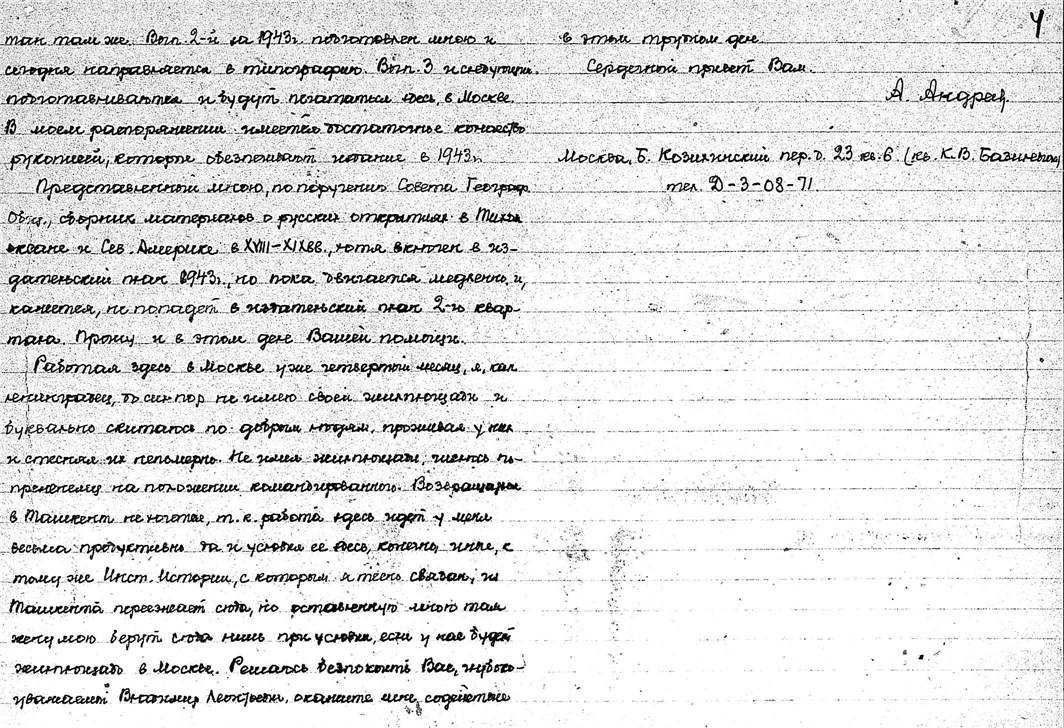 4
так там же. Вып. 2-й за 1943г. подготовлен мною и
сегодня направляется в типографию. Вып. 3 и следующие
подготавливаются и будут печататься здесь, в Москве.
В моем распоряжении имеется достаточное количество
рукописей, которые обеспечивают издание в 1943г.
Представленный мною, по поручению Совета Географ.
Общ., сборник материалов о русских открытиях в Тихом
океане и Сев. Америке в XVIII–XIXвв., хотя включен в из-
дательский план 1943г., но пока двигается медленно и,
кажется, не попадет в издательский план 2-го квар-
тала. Прошу и в этом деле Вашей помощи.
Работая здесь в Москве уже четвертый месяц, я, как
ленинградец, до сих пор не имею своей жилплощади и
буквально скитаюсь по добрым людям, проживая у них
и стесняя их непомерно. Не имея жилплощади, числюсь по-
прежнему на положении командированного. Возвращаться
в Ташкент не хочется, т.к. работа здесь идет у меня
весьма продуктивно да и условия ее здесь, конечно, иные, к
тому же Инст. Истории, с которым я тесно связан, из
Ташкента переезжает сюда, но оставленную мною там
жену мою берут сюда лишь при условии, если у нас будет
жилплощадь в Москве. Решаюсь беспокоить Вас, глубоко-
уважаемый Владимир Леонтьевич, окажите мне содействие
в этом трудном деле.
Сердечный привет Вам.
А. Андреев.
Москва, Б. Козихинский пер. д. 23 кв. 6. (кв. К.В. Базилевича)
тел. Д-3-08-71.